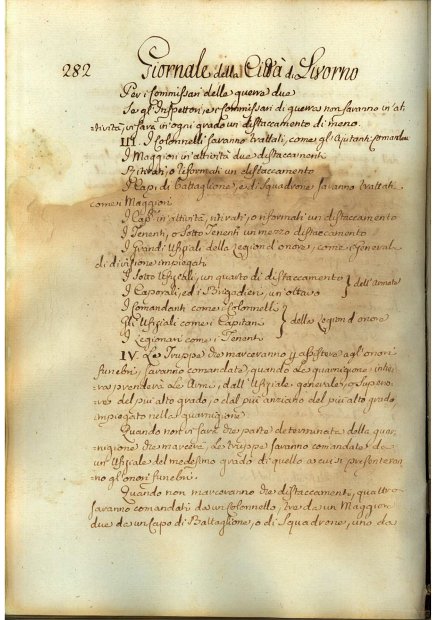 282 Giornale della Città di Livorno
Per i Commissari delle guerre due
Se gl'Inspettori, e i Commissari di guerra non saranno in at-
tività, vi sarà in ogni grado un distaccamento di meno.
III. I Colonnelli saranno trattati, come gl'Ajutanti Comandan
I Maggiori in attività due distaccamenti
Ritirati, o riformati un distaccamento
I Capi di Battaglione, e di Squadrone saranno trattati
come i Maggiori
I Cap.ⁿⁱ in attività, ritirati, o riformati un distaccamento
I Tenenti, o Sotto Tenenti un mezzo distaccamento
I Grandi Ufiziali della Legion d'onore, come i Generali
di divisione impiegati
I Sotto Ufiziali, un quarto di distaccamento } dell'Armata
I Caporali, ed i Brigadieri, un ottavo
I Comandanti come i Colonnelli
Gli Ufiziali come i Capitani } della Legion d'onore
I Legionari come i Tenenti
IV. Le Truppe che marceranno p assistere agl'onori
funebri, saranno comandate, quando la guarnigione inti-
era prenderà le Armi, dall'Ufiziale generale, o superio-
re del più alto grado, o dal più anziano del più alto grado,
impiegato nella guarnigione.
Quando non vi sarà che parte determinata della guar-
nigione che marcerà, le truppe saranno comandate da
un Ufiziale del medesimo grado di quello a cui si presenteran-
no gl'onori funebri.
Quando non marceranno che distaccamenti, quattro
saranno comandati da un Colonnello, tre da un Maggiore
due da un Capo di Battaglione, o di Squadrone, uno da